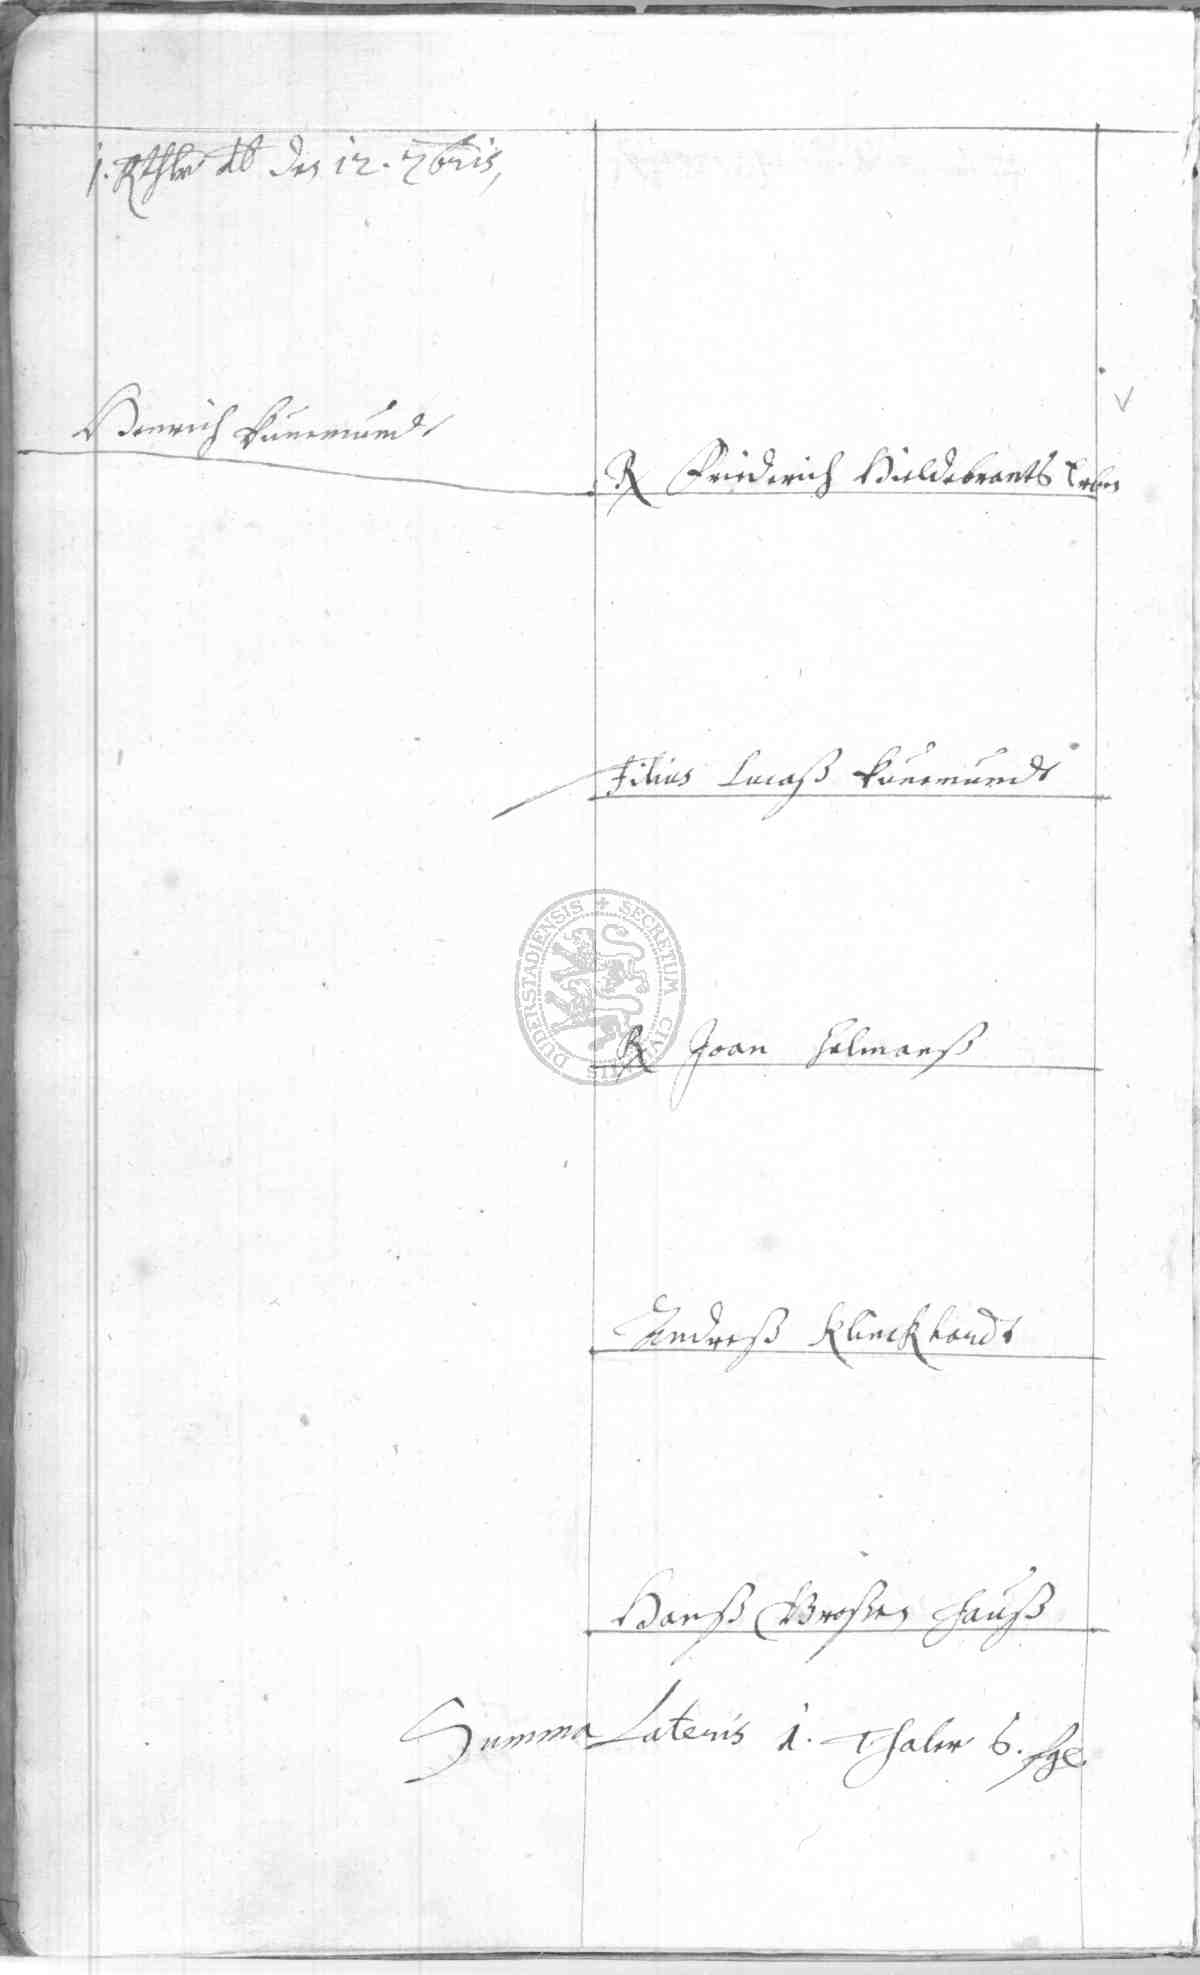 1. Rthlr dt den 12. 7bris,
Henrich Kunemundt
R Friederich Hildebrants Erben
Filius Lucaß Kunemundt
R Joan Helmanß
Andreß Klinckhardt
Hanß Großen Hauß
Summa Lateris 1. Thaler 6. sgl
DUDERSTADIENSIS + SECRETUM CIVITATIS